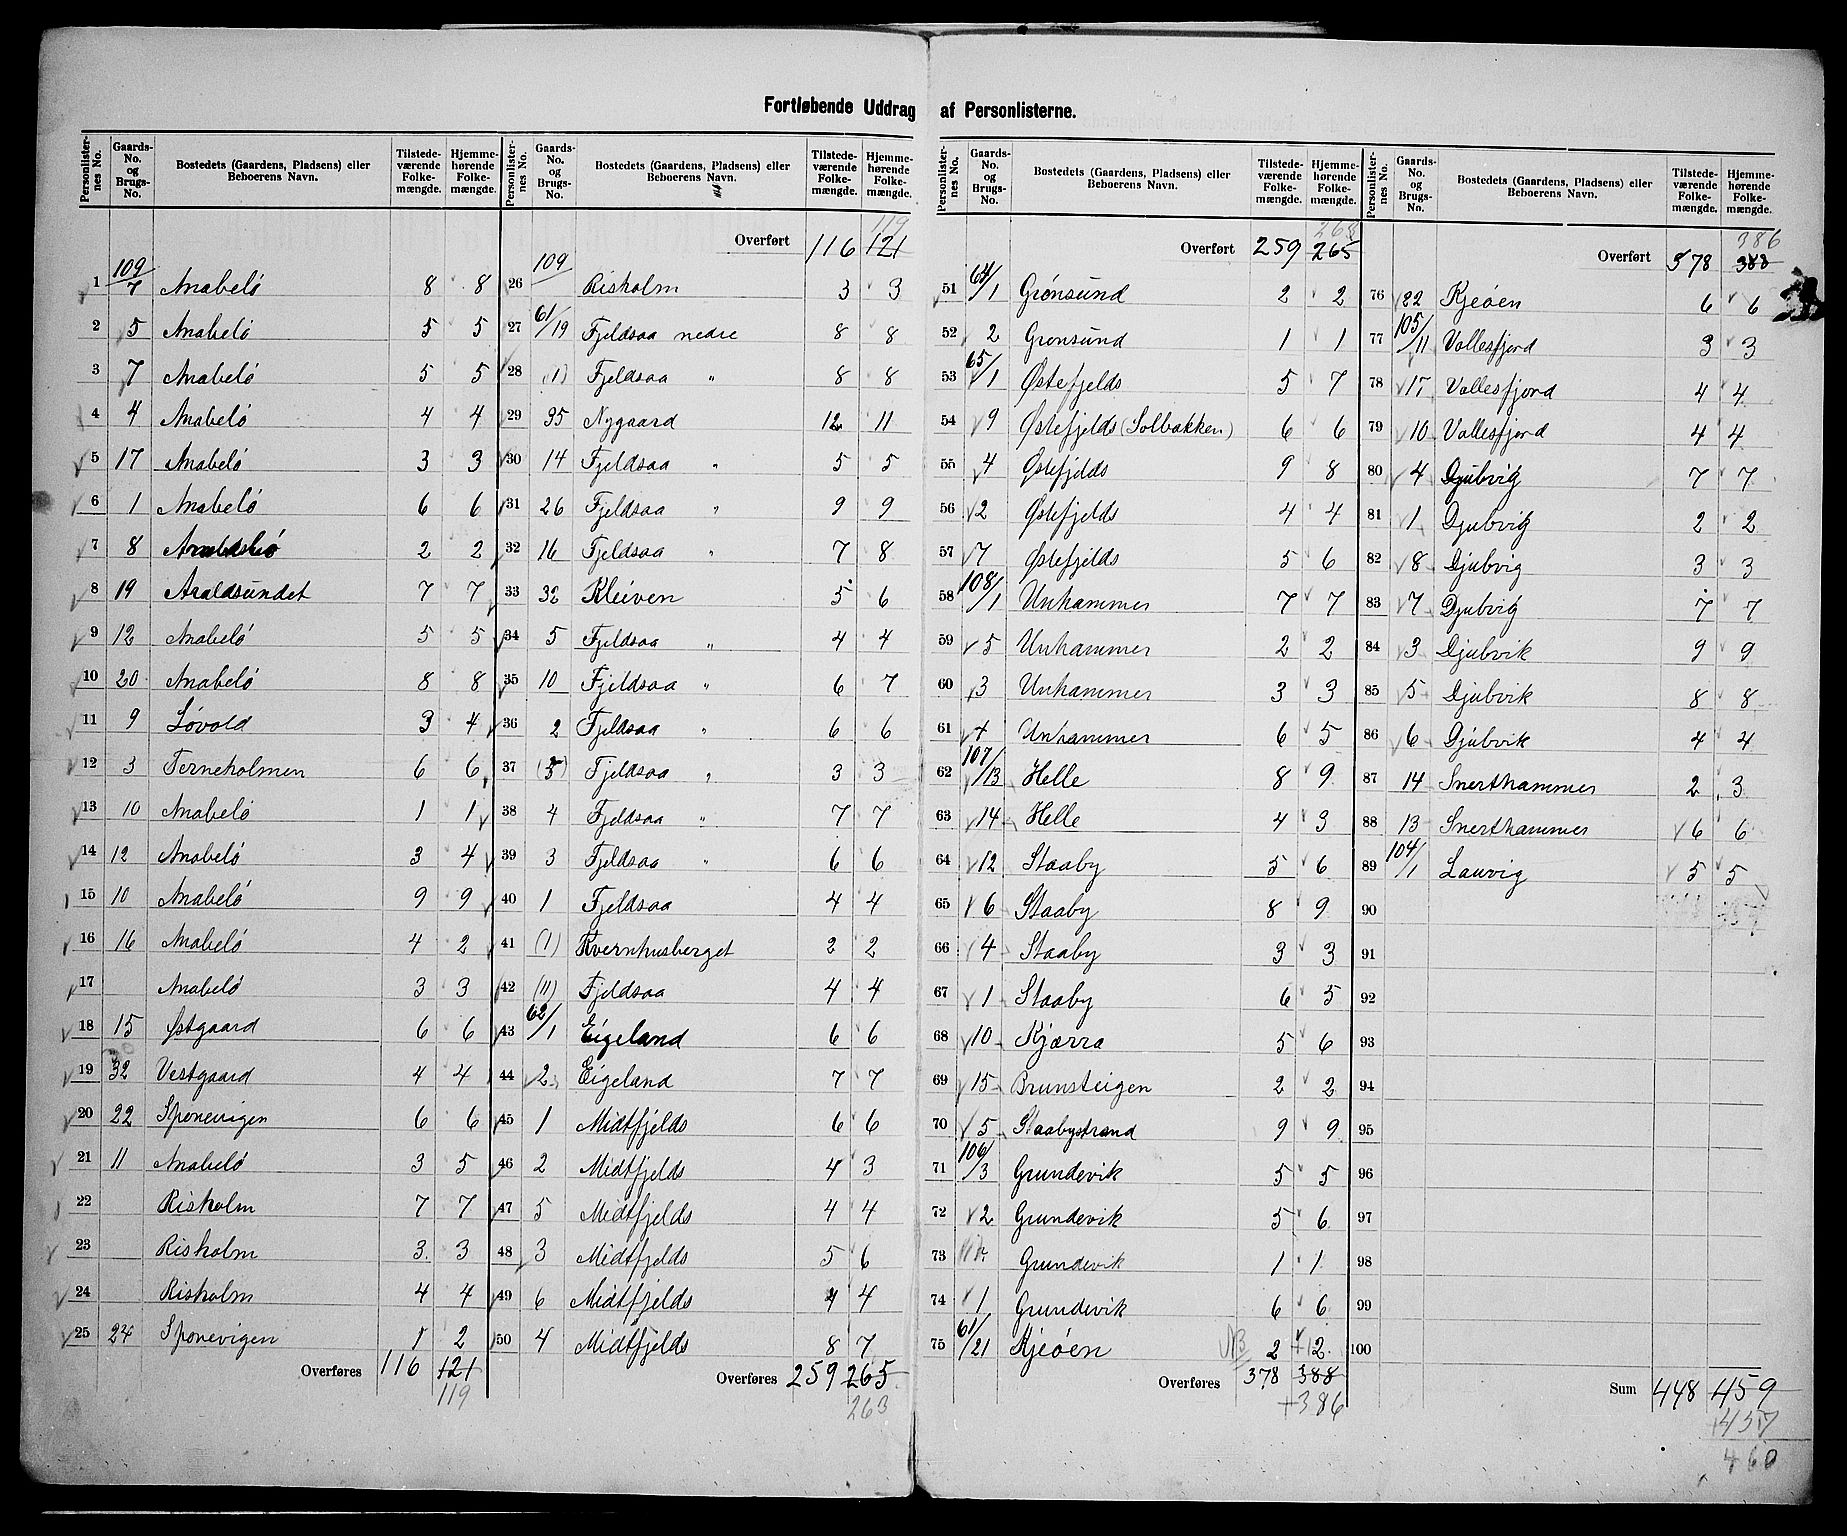 Fortløbende Uddrag af Personlisterne.
Personlister-nes No. Gaards-No. og Brugs-No. Bostedets (Gaardens, Pladsens) eller Beboerens Navn. Tilstede-værende Folke-mængde. Hjemme-hørende Folke-mængde.
1 109/7 Anabelö 8 8
2 5 Anabelö 5 5
3 7 Anabelö 5 5
4 4 Anabelö 4 4
5 17 Anabelö 3 3
6 1 Anabelö 6 6
7 8 2 2
8 19 Araldsundet 7 7
9 12 Anabelö 5 5
10 20 Anabelö 8 8
11 9 Løvold 3 4
12 3 Terneholmen 6 6
13 10 Anabelö 1 1
14 12 Anabelö 3 4
15 10 Anabelö 9 9
16 16 Anabelö 4 2
17 Anabelö 3 3
18 15 Østgaard 6 6
19 32 Vestgaard 4 4
20 22 Sponevigen 6 6
21 11 Anabelö 3 5
22 Risholm 7 7
23 Risholm 3 3
24 Risholm 4 4
25 24 Sponevigen 1 2
Overføres 116 121
119
Personlister-nes No. Gaards-No. og Brugs-No. Bostedets (Gaardens, Pladsens) eller Beboerens Navn. Tilstede-værende Folke-mængde. Hjemme-hørende Folke-mængde.
119
Overført 116 121
26 109/ Risholm 3 3
27 61/19 Fjeldsaa nedre 8 8
28 (1) Fjeldsaa " 8 8
29 35 Nygaard 12 11
30 14 Fjeldsaa " 5 5
31 26 Fjeldsaa " 9 9
32 16 Fjeldsaa " 7 8
33 32 Kleiven 5 6
34 5 Fjeldsaa " 4 4
35 10 Fjeldsaa " 6 7
36 2 Fjeldsaa " 6 6
37 (5) Fjeldsaa " 3 3
38 4 Fjeldsaa " 7 7
39 3 Fjeldsaa " 6 6
40 1 Fjeldsaa 4 4
41 (1) Kvernhusberget 2 2
42 (11) Fjeldsaa 4 4
43 62/1 Eigeland 6 6
44 2 Eigeland 7 7
45 1 Midtfjelds 6 6
46 2 Midtfjelds 4 3
47 5 Midtfjelds 4 4
48 3 Midtfjelds 5 6
49 6 Midtfjelds 4 4
50 4 Midtfjelds 8 7
Overføres 259 265
263
Personlister-nes No. Gaards-No. og Brugs-No. Bostedets (Gaardens, Pladsens) eller Beboerens Navn. Tilstede-værende Folke-mængde. Hjemme-hørende Folke-mængde.
263
Overført 259 265
51 64/1 Grønsund 2 2
52 2 Grønsund 1 1
53 65/1 Østefjelds 5 7
54 9 Østefjelds (Solbakken) 6 6
55 4 Østefjelds 9 8
56 2 Østefjelds 4 4
57 7 Østefjelds 5 6
58 108/1 Unhammer 7 7
59 5 Unhammer 2 2
60 3 Unhammer 3 3
61 4 Unhammer 6 5
62 107/13 Helle 8 9
63 14 Helle 4 3
64 12 Staaby 5 6
65 6 Staaby 8 9
66 4 Staaby 3 3
67 1 Staaby 6 5
68 10 Kjærra 5 6
69 15 Brunsteigen 2 2
70 5 Staabystrand 9 9
71 106/3 Grundevik 5 5
72 2 Grundevik 5 6
73 Grundevik 1 1
74 1 Grundevik 6 6
75 61/21 Kjeöen NB 2 2
Overføres 378 388
386
Personlister-nes No. Gaards-No. og Brugs-No. Bostedets (Gaardens, Pladsens) eller Beboerens Navn. Tilstede-værende Folke-mængde. Hjemme-hørende Folke-mængde.
386
Overført 378 388
76 22 Kjeöen 6 6
77 105/11 Vollesfjord 3 3
78 15 Vollesfjord 4 4
79 10 Vollesfjord 4 4
80 4 Djubvig 7 7
81 1 Djubvig 2 2
82 8 Djubvig 3 3
83 7 Djubvig 7 7
84 3 Djubvik 9 9
85 5 Djubvik 8 8
86 6 Djubvik 4 4
87 14 Snerthammer 2 3
88 13 Snerthammer 6 6
89 104/1 Lauvig 5 5
90
91
92
93
94
95
96
97
98
99
100
Sum 448 459
457
460